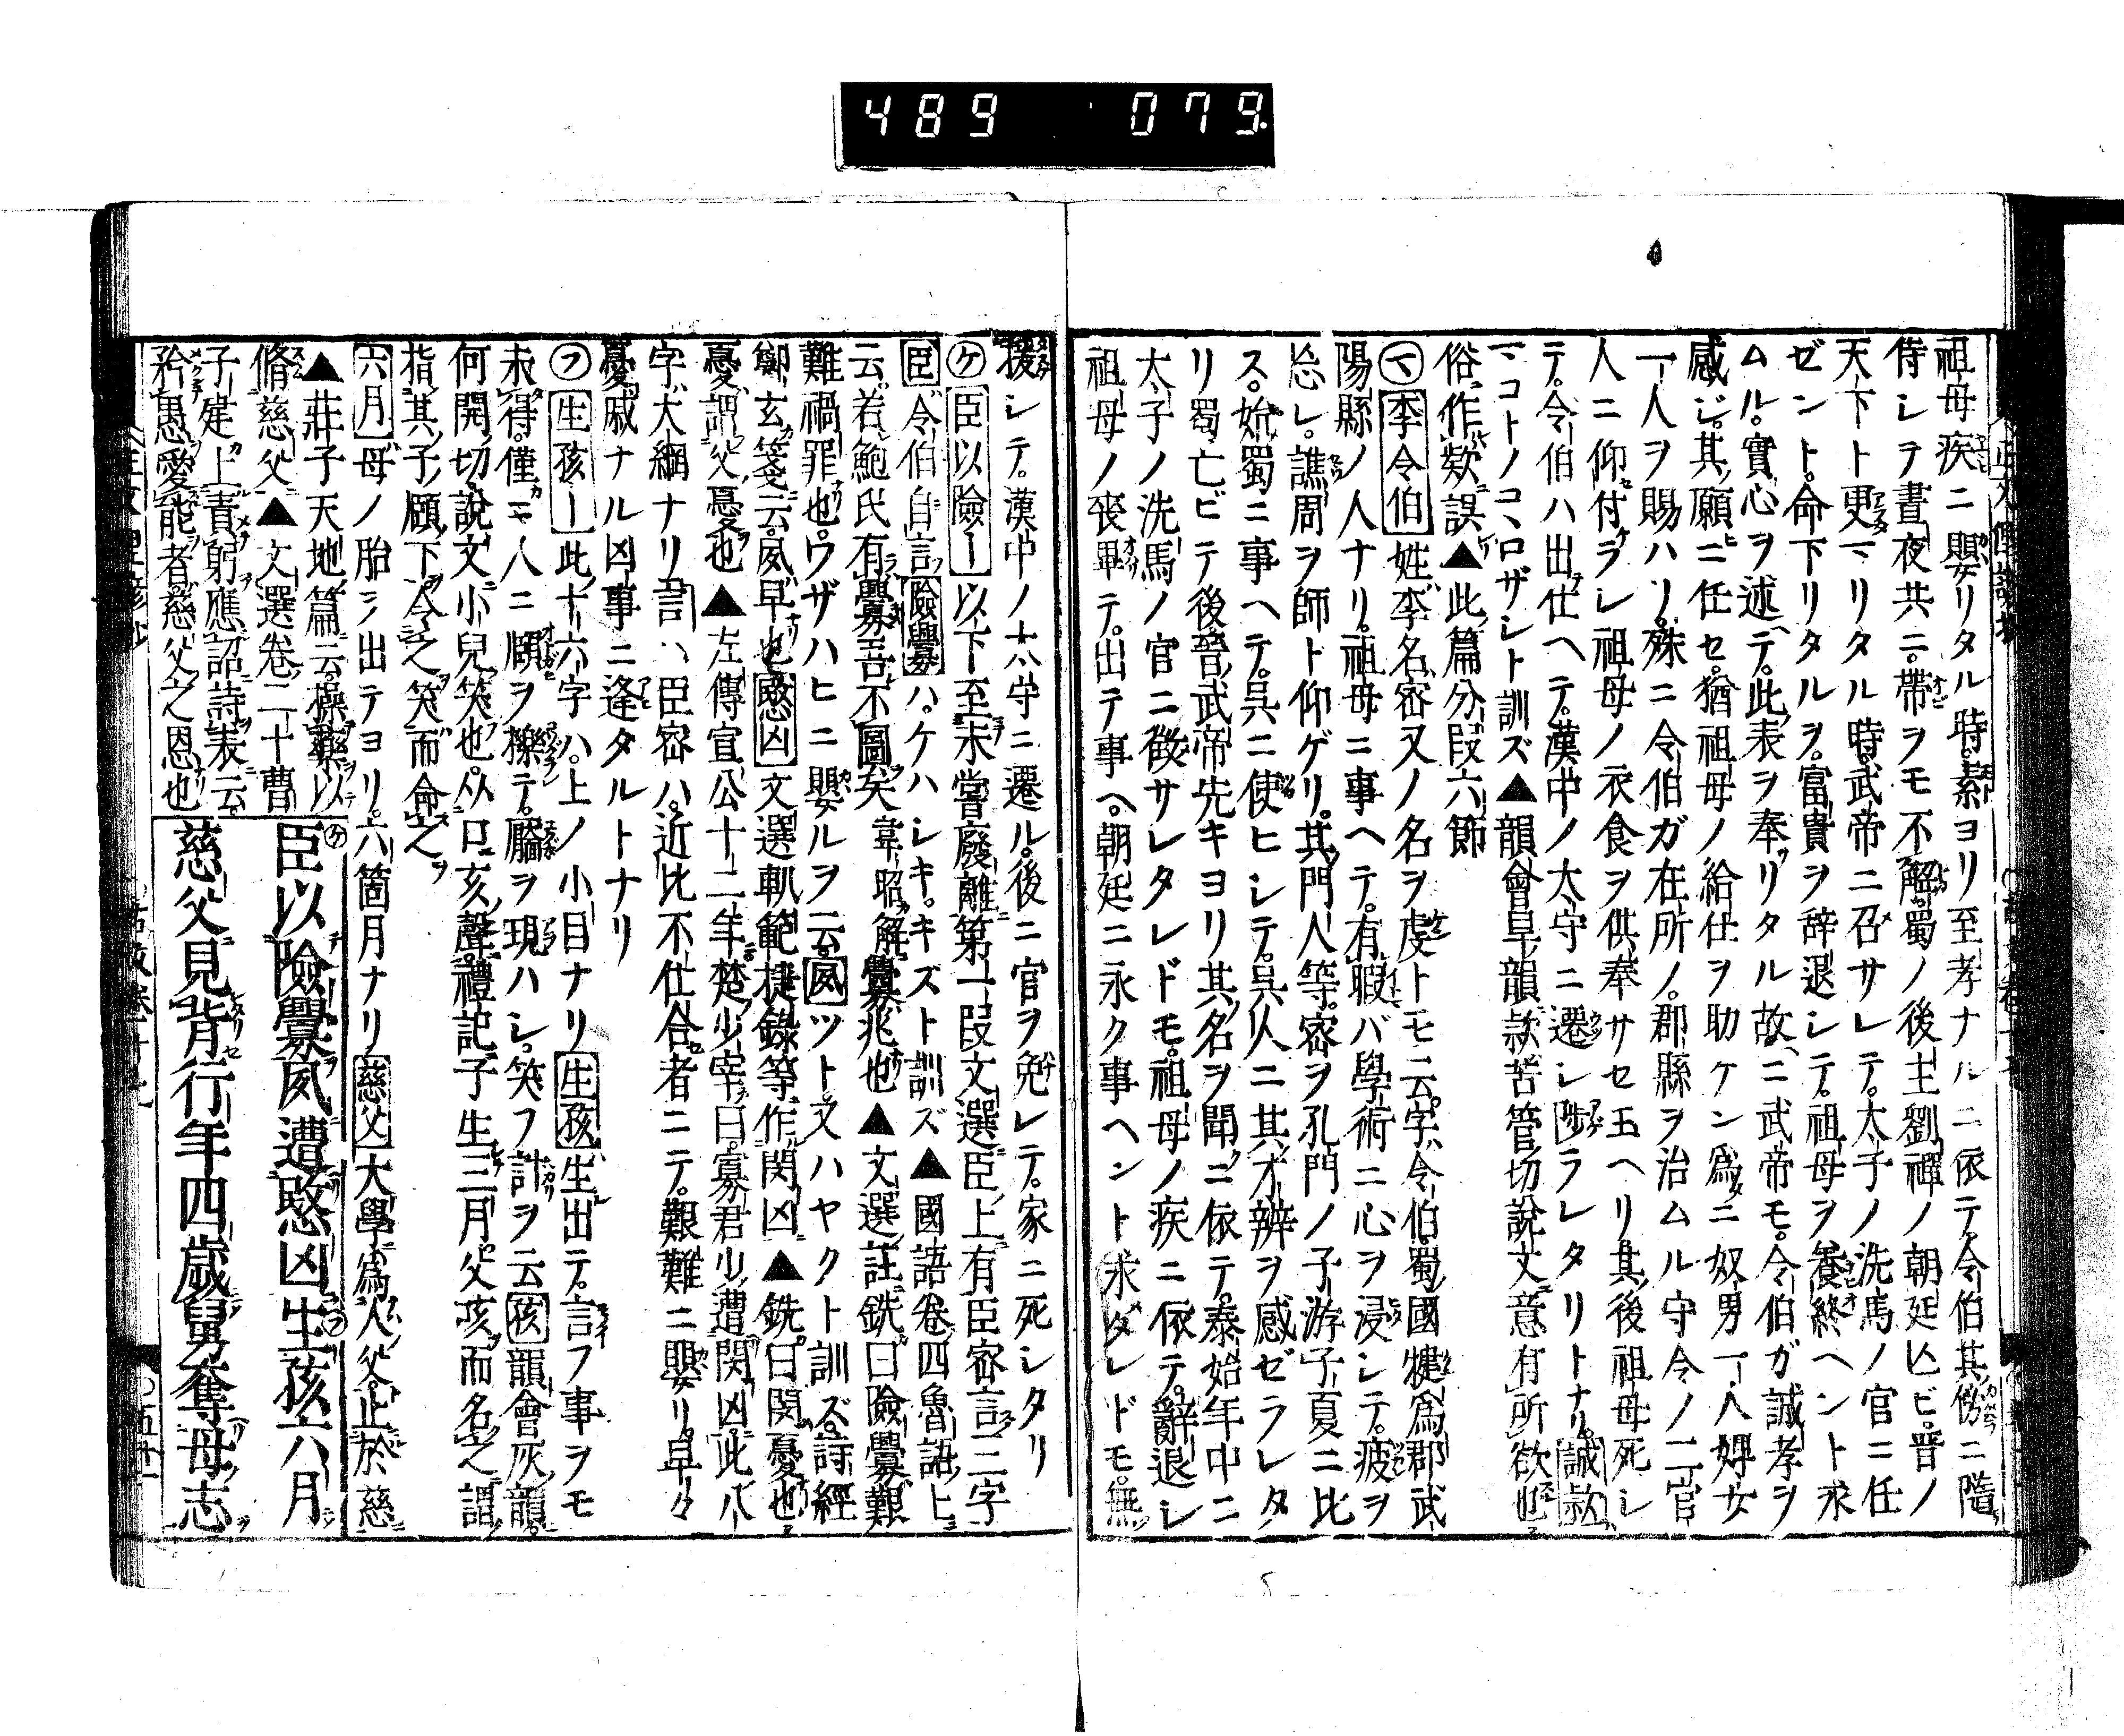 489 079
祖母疾ニ嬰リタル時。素ヨリ至孝ナルニ依テ。令伯其傍ニ陪
侍シテ晝夜共ニ。帶ヲモ不解。蜀ノ後主劉禪ノ朝廷亡ビ。晉ノ
天下ト更マリタル時。武帝ニ召サレテ。太子ノ洗馬ノ官ニ任
ゼント。命下リタルヲ。富貴ヲ辞退シテ。祖母ヲ養終ヘント求
ムル。實心ヲ述テ。此表ヲ奉リタル故ニ武帝モ。令伯ガ誠孝ヲ
感ジ。其願ニ任セ。猶祖母ノ給仕ヲ助ケン爲ニ奴男一人婢女
一人ヲ賜ハリ。殊ニ令伯ガ在所ノ。郡縣ヲ治ムル守令ノ二官
人ニ仰付ラレ祖母ノ衣食ヲ供奉サセ玉ヘリ其後祖母死シ
テ。令伯ハ出仕ヘテ。漢中ノ太守ニ遷シ陟ラレタリトナリ。誠款
マコトノコヽロザシト訓ズ▲韻會旱韻款苦管切說文意有所欲也
俗作欵誤▲此篇分段六節
㋮李令伯姓李名密又ノ名ヲ虔トモ云。字令伯。蜀國犍爲郡武
陽縣ノ人ナリ。祖母ニ事ヘテ。有暇バ學術ニ心ヲ浸シテ。疲ヲ
忘レ。譙周ヲ師ト仰ゲリ。其門人等。密ヲ孔門ノ子游子夏ニ比
ス。始蜀ニ事ヘテ。呉ニ使ヒシテ。呉人ニ其才辨ヲ感ゼラレタ
リ蜀亡ビテ後晉武帝先キヨリ其名ヲ聞ニ依テ。泰始年中ニ
太子ノ洗馬ノ官ニ徴サレタレドモ。祖母ノ疾ニ依テ。辭退シ
祖母ノ喪畢テ。出テ事ヘ。朝廷ニ永ク事ヘント求タレドモ。無
援シテ。漢中ノ太守ニ遷ル。後ニ官ヲ免レテ。家ニ死シタリ
㋘臣以險ー以下至未嘗廢離第一段文選臣上有臣密言三字
臣令伯自言險釁ハ。ケハシキ。キズト訓ズ▲國語卷四魯語上
云。若鮑氏有釁吾不圖矣韋昭解釁兆也▲文選註銑曰險釁艱
難禍罪也。ワザハヒニ嬰ルヲ云。夙ツト又ハヤクト訓ズ。詩經
鄭玄箋云。夙早也愍凶文選軌範捷錄等作閔凶▲銑曰閔憂也
憂謂父憂也▲左傳宣公十二年楚少宰曰。寡君少遭閔凶。此八
字大綱ナリ言ハ臣密ハ。近比不仕合者ニテ。艱難ニ嬰リ。早々
憂戚ナル凶事ニ逢タルトナリ
㋫生孩ー此十六字ハ。上ノ小目ナリ生孩生出テ。言フ事ヲモ
未得。僅モ人ニ頤ヲ擽テ。臑ヲ現ハシ。笑フ計ヲ云孩韻會灰韻。
何開切。說文小兒笑也。从口亥聲。禮記子生三月。父孩而名之謂
指其子頤下令之笑而命之
六月母ノ胎ヲ出テヨリ。六箇月ナリ慈父大學爲人父。止於慈
▲莊子天地篇云。操藥以
脩慈父▲文選卷二十曹
子建上責躬應詔詩表云。
矜愚愛能者慈父之恩也
臣以險釁夙遭愍凶生孩六月
慈父見背行年四歲舅奪母志